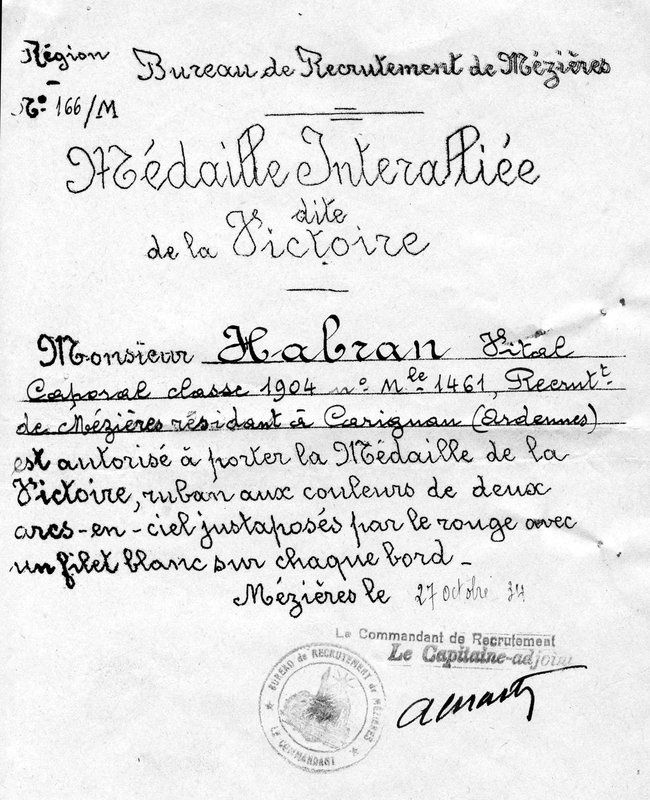 Région
Bureau de Recrutement de Mézières
No 166/M
Médaille Interalliée
dite
de la Victoire
Monsieur Habran Vital
Caporal classe 1904 no Mle 1461, Recrutt
de Mézières résidant à Carignan (Ardennes)
est autorisé à porter la Médaille de la
Victoire, ruban aux couleurs de deux
arcs-en-ciel justaposés par le rouge avec
un filet blanc sur chaque bord -
Mézières le 27 octobre 34
Le Commandant de Recrutement
Le Capitaine-adjoint
BUREAU de RECRUTEMENT de MÉZIÈRES
LE COMMANDANT